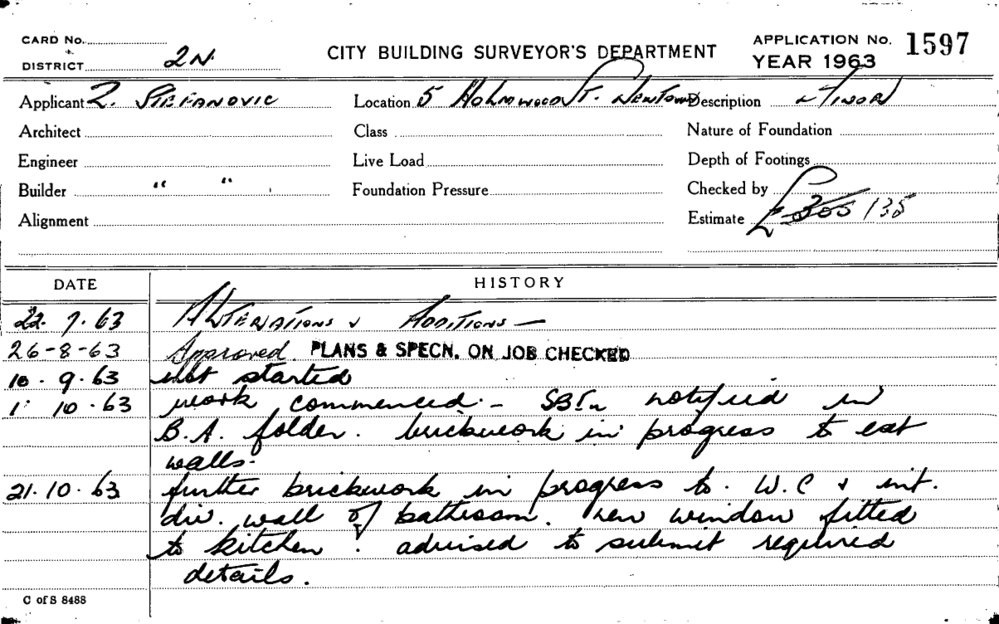 CARD No.
DISTRICT 2N.
CITY BUILDING SURVEYOR'S DEPARTMENT
APPLICATION No. 1597
YEAR 1963
Applicant Z. STEFANOVIC Location 5 Holmwood St. Newtown Description MINOR
Architect Class Nature of Foundation
Engineer Live Load Depth of Footings
Builder " " Foundation Pressure Checked by
Alignment Estimate £ 355 135
DATE HISTORY
22.7.63 ALTERATIONS & ADDITIONS —
26-8-63 Approved. PLANS & SPECN. ON JOB CHECKED
10.9.63 not started
1.10.63 work commenced. - notified in
B.A. folder. brickwork in progress to ext
walls.
21.10.63 further brickwork in progress to. W.C & int.
div. wall of bathroom. new window fitted
to kitchen. advised to submit required
details.
C of S 8488